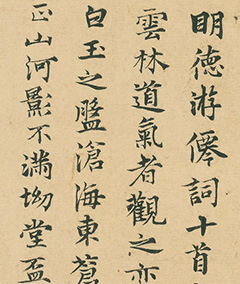 明德游僊詞十首
雲林道氣者觀之亦
白玉之盤滄海東蒼
正山河影不滿坳堂盃